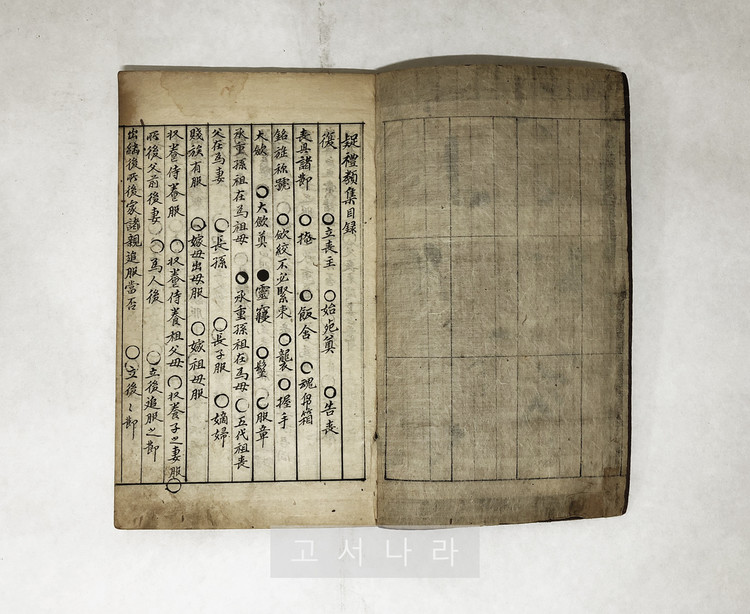 疑禮類集目録
復 ○立喪主 ○始死奠 ○告喪
喪具諸節 ○掩 ○飯含 ○魂帛箱
銘旌称號 ○斂絞不必緊束 ○襲 ○握手
大斂 ○大斂奠 ●靈寢 ○髽 ○服章
承重孫祖在為祖母 ○承重孫祖在為母 ○五代祖喪
父在為妻 ○長孫 ○長子服 ○嫡婦
賤族有服 ○嫁母出母服 ○嫁祖母服
収養侍養服 ○収養侍養祖父母 ○収養子之妻服 ○
所後父前後妻 ○為人後 ○立後追服之節
出繼後所後家諸親追服當否 ○立後之節
고서나라